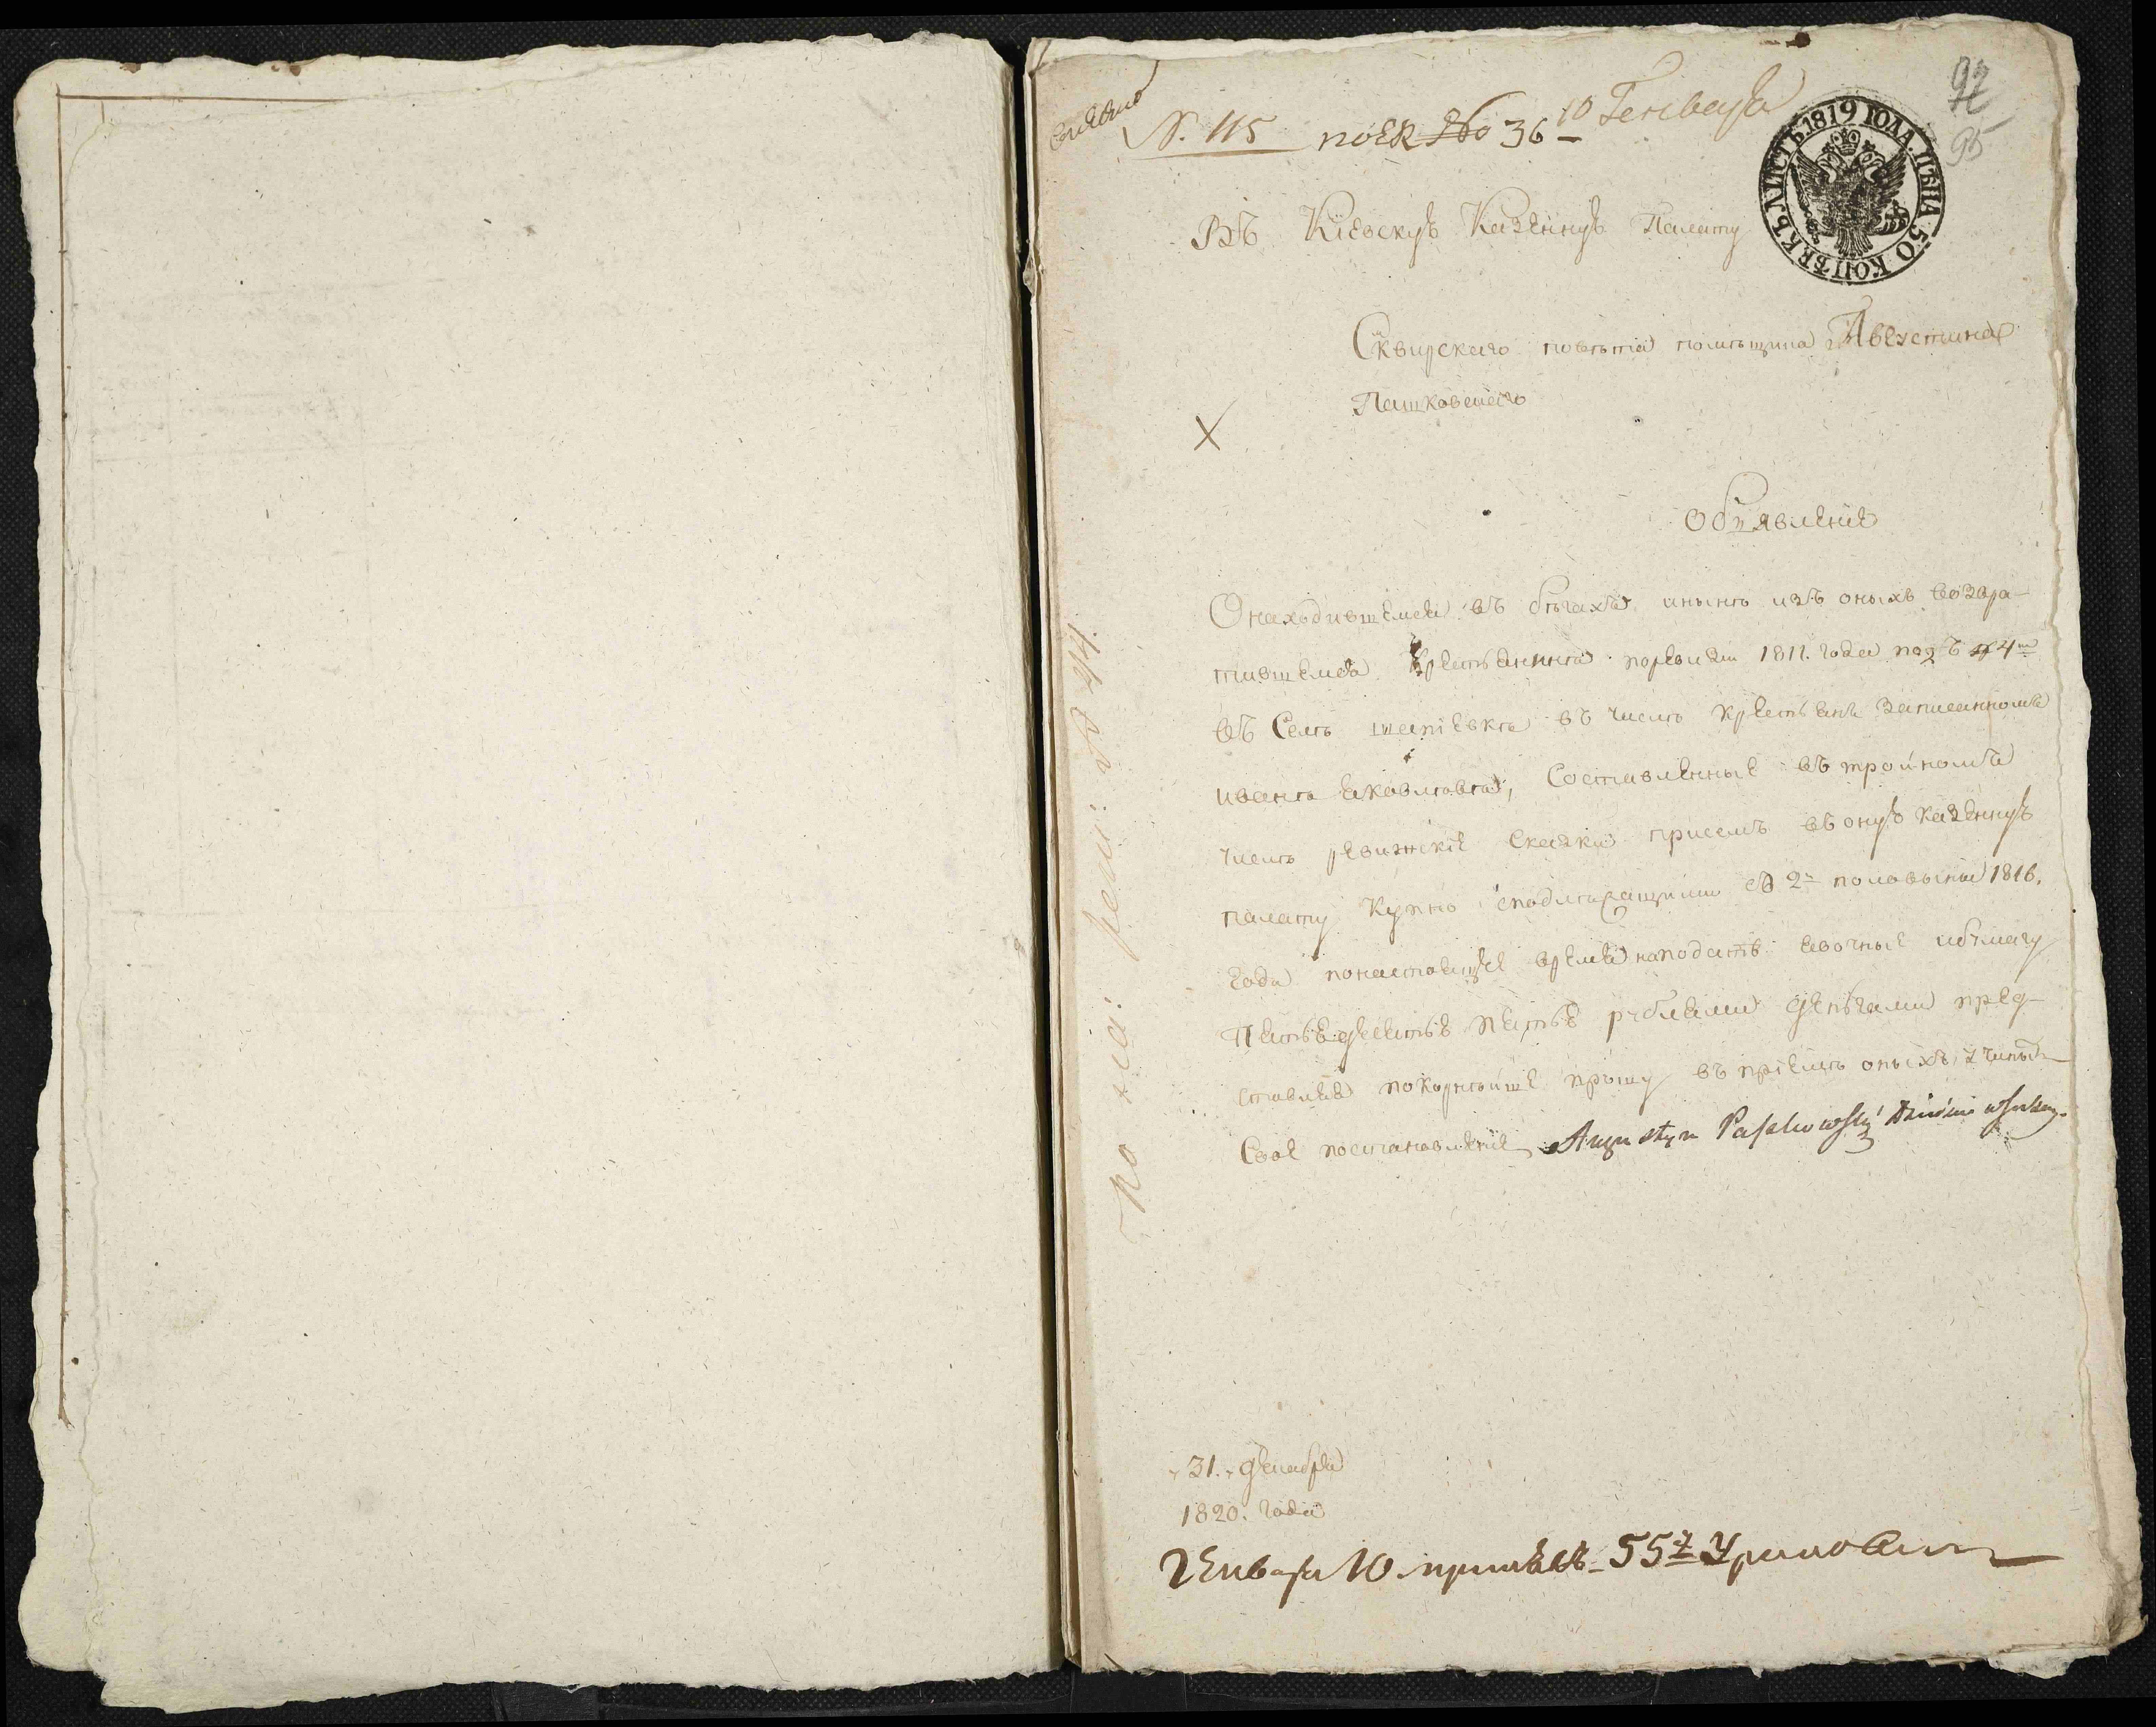 92
95
N. 115 по ек 36 10 Генваря
ЛИСТЪ. 1819 ГОДА. ЦѢНА. 50 КОПѢЕКЪ.
Въ Кіевскую Казенную Палату
Сквирского повѣта помѣщика Августина
Пашковскаго
Х
Объявленіе
О находившемся въ бѣгахъ и нынѣ изъ оныхъ возвра-
тившемся крестьянинѣ по ревизіи 1811. года подъ № 4м
въ Селѣ въ числѣ крестьянъ записанномъ
Иванѣ Яковлевѣ, Составленные въ тройномъ
числѣ ревизскіе сказки при семъ въ оную казенную
палату купно съ подлежащими съ 2й половины 1816.
года по настоящее время податьми
Пятьдесятъ пять рублями деньгами пред-
ставляя покорнѣйше прошу въ пріемѣ оныхъ учинить
Свое постановленіе Augustyn Paszkowski
31. декабря
1820. года
Генваря 10 55